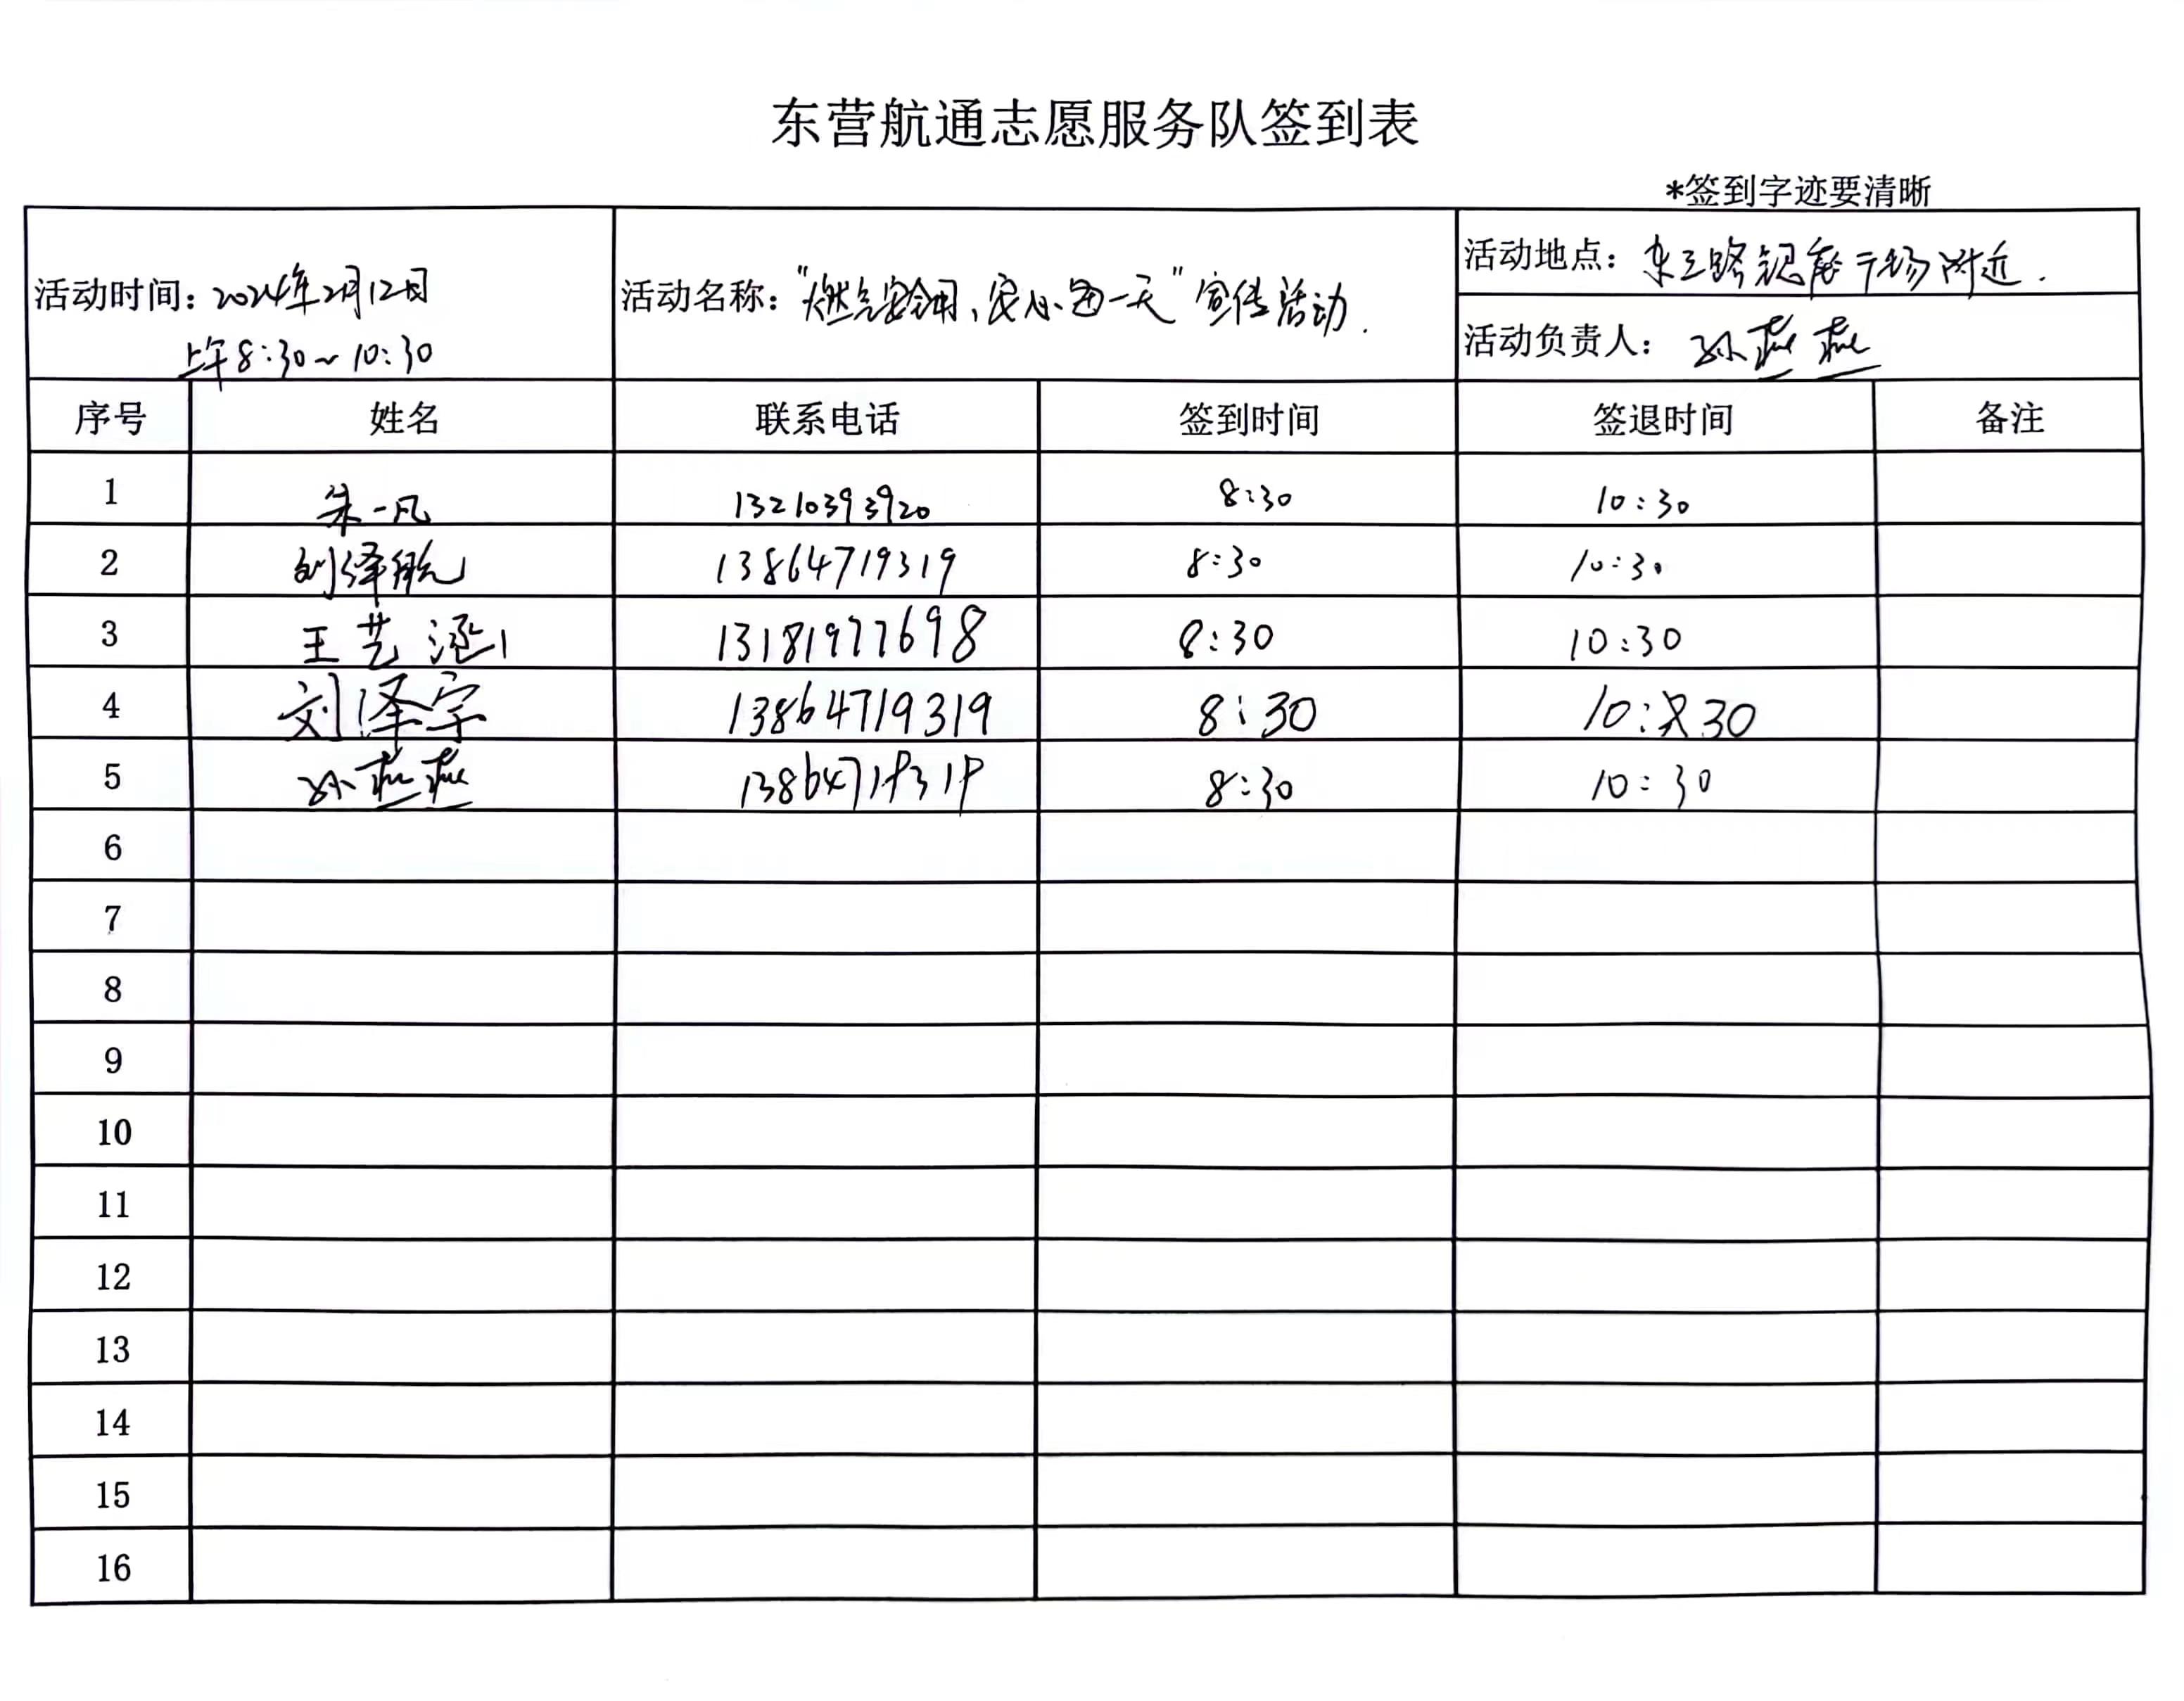 东营航通志愿服务队签到表
*签到字迹要清晰
活动时间：2024年2月12日
上午8:30~10:30
活动名称："燃气安全用，安心每一天"宣传活动.
活动地点：东三路银座广场附近.
活动负责人：孙燕燕
序号 姓名 联系电话 签到时间 签退时间 备注
1 朱一凡 13210393920 8:30 10:30
2 刘泽航 13864719319 8:30 10:30
3 王艺涵 13181977698 8:30 10:30
4 刘泽宇 13864719319 8:30 10:30
5 孙燕燕 13864719319 8:30 10:30
6
7
8
9
10
11
12
13
14
15
16